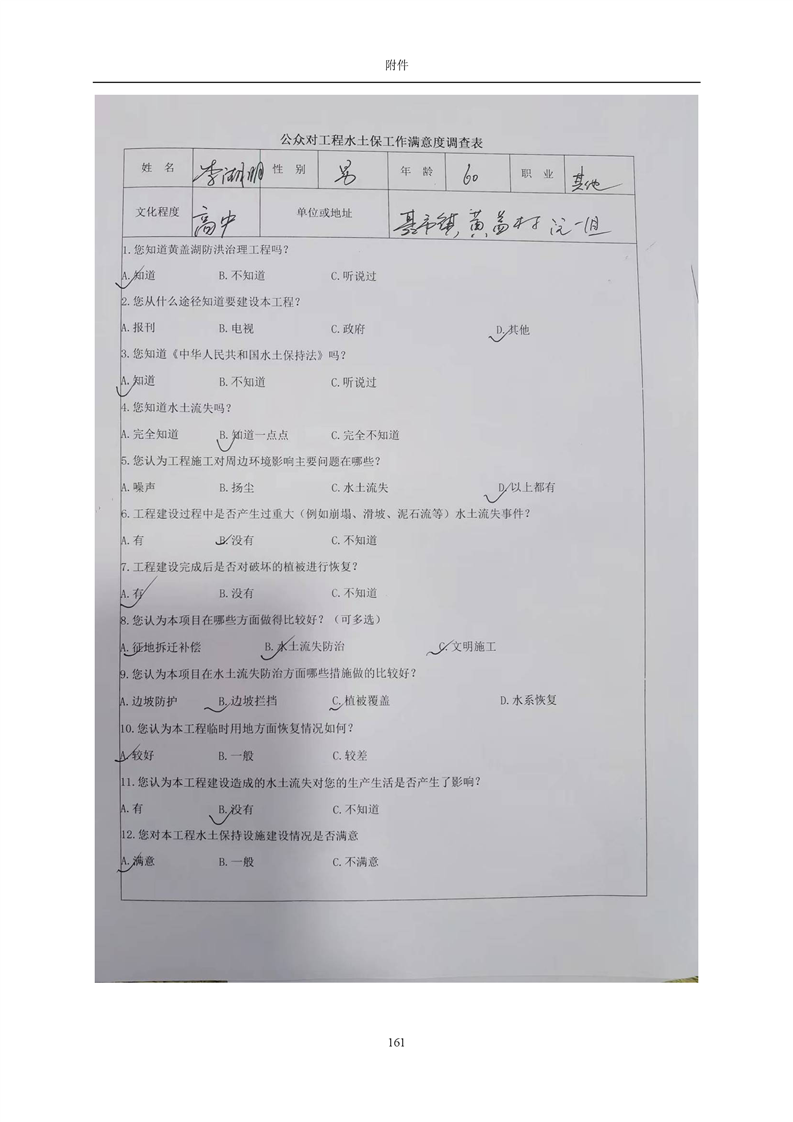 附件
公众对工程水土保工作满意度调查表
姓 名 李湖明 性 别 男 年 龄 60 职 业 其他
文化程度 高中 单位或地址 聂市镇,黄盖村
1.您知道黄盖湖防洪治理工程吗？
A.知道 B.不知道 C.听说过
2.您从什么途径知道要建设本工程？
A.报刊 B.电视 C.政府 D.其他
3.您知道《中华人民共和国水土保持法》吗？
A.知道 B.不知道 C.听说过
4.您知道水土流失吗？
A.完全知道 B.知道一点点 C.完全不知道
5.您认为工程施工对周边环境影响主要问题在哪些？
A.噪声 B.扬尘 C.水土流失 D.以上都有
6.工程建设过程中是否产生过重大（例如崩塌、滑坡、泥石流等）水土流失事件？
A.有 B.没有 C.不知道
7.工程建设完成后是否对破坏的植被进行恢复？
A.有 B.没有 C.不知道
8.您认为本项目在哪些方面做得比较好？（可多选）
A.征地拆迁补偿 B.水土流失防治 C.文明施工
9.您认为本项目在水土流失防治方面哪些措施做的比较好？
A.边坡防护 B.边坡拦挡 C.植被覆盖 D.水系恢复
10.您认为本工程临时用地方面恢复情况如何？
A.较好 B.一般 C.较差
11.您认为本工程建设造成的水土流失对您的生产生活是否产生了影响？
A.有 B.没有 C.不知道
12.您对本工程水土保持设施建设情况是否满意
A.满意 B.一般 C.不满意
161